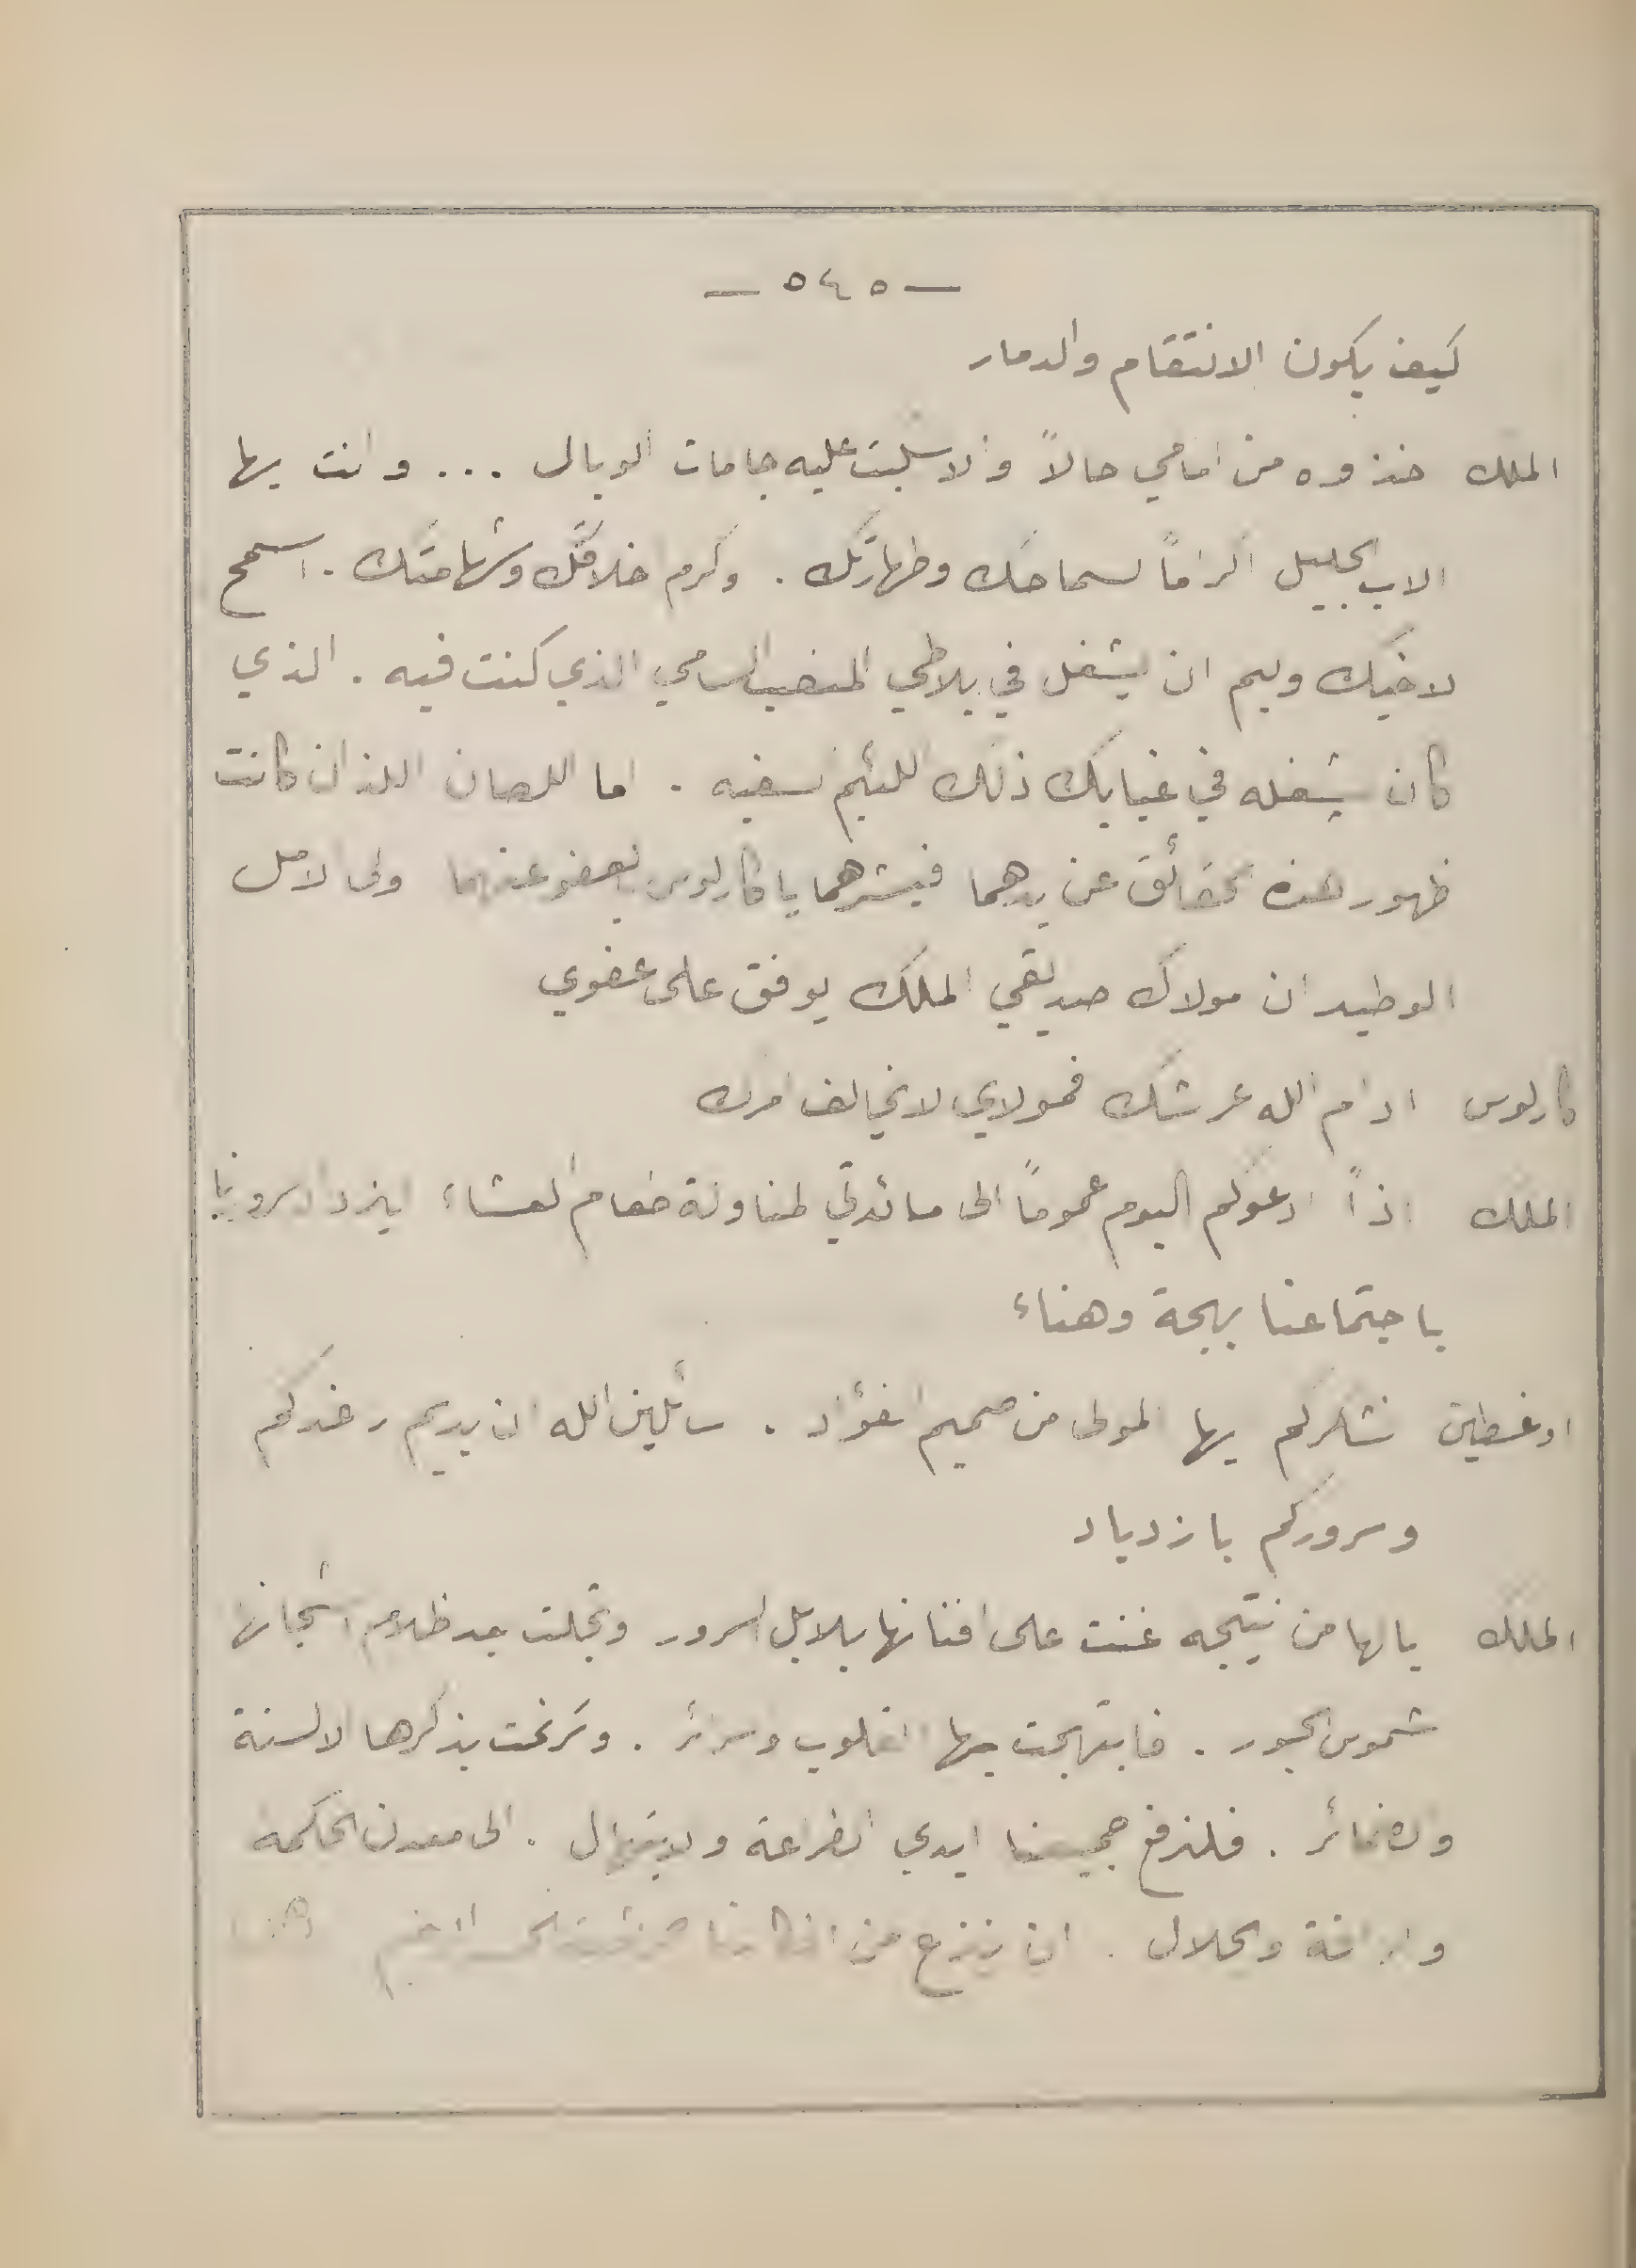 — ٥٤٥ —
كيف يكون الانتقام والدمار
الملك خذوه من امامي حالاً والا سكبت عليه جامات الوبال ... وانت ايها
الاب الجليل اكراماً لسماحك وطهارتك . وكرم اخلاقك وشهامتك . اسمح
لاخيك وليم ان يشغل في بلاطي المنصب السامي الذي كنت فيه . الذي
كان يشغله في غيابك ذلك اللئيم السفيه . اما اللصان اللذان كانت
ظهور هذه الحقائق عن يدهما فبشرهما يا كارلوس بالعفو عنهما ولي الامل
الوطيد ان مولاك صديقي الملك يوفق على عفوي
كارلوس ادام الله عرشك فمولاي لا يخالف امرك
الملك اذاً ادعوكم اليوم عموماً الى مائدتي لمناولة طعام العشاء ليزداد سرورنا
باجتماعنا بهجة وهناء
اوغسطين نشكركم ايها المولى من صميم الفؤاد . سائلين الله ان يديم رغدكم
وسروركم بازدياد
الملك يا لها من نتيجه غنت على افنانها بلابل السرور وتجلت بعد ظلام اشجانها
شموس الحبور . فابتهجت بها القلوب والسرائر . وترنمت بذكرها الالسنة
والضمائر . فلنرفع جميعنا ايدي الضراعة والابتهال . الى معدن الحكمه
والرافة والجلال . ان ينزع من افكارنا